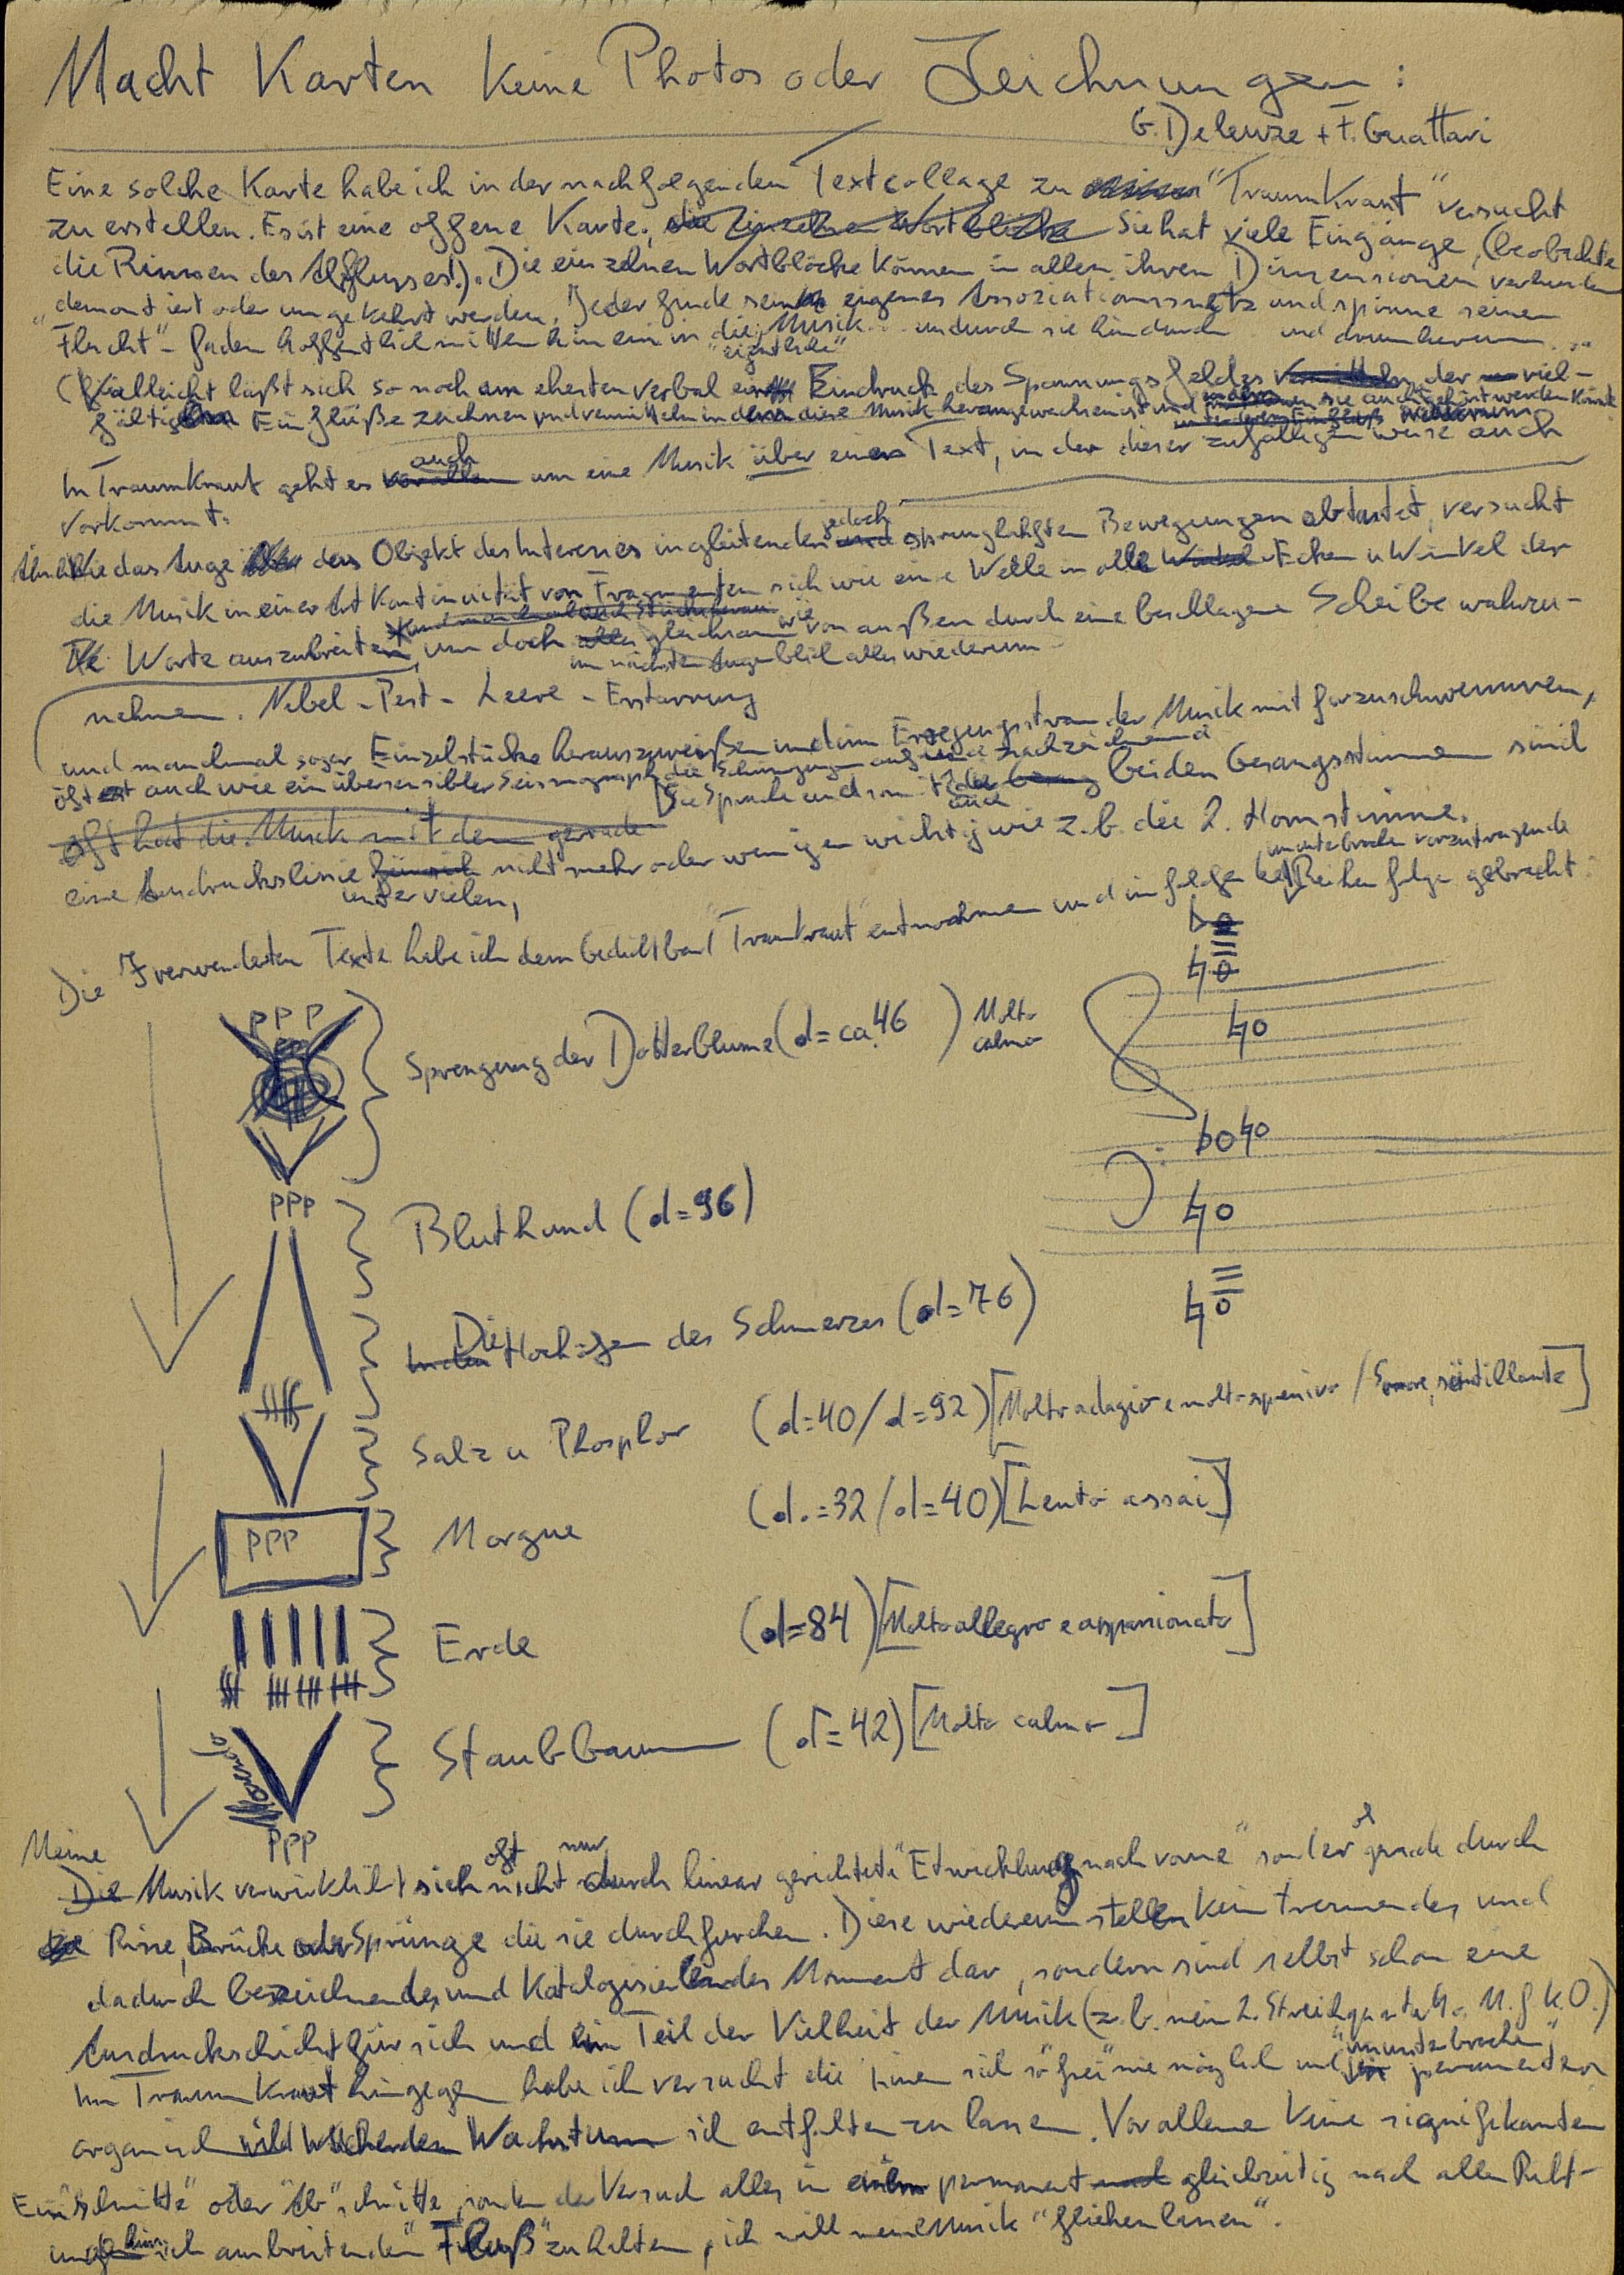 Macht Karten keine Photos oder Zeichnungen:
G. Deleuze + F. Guattari
Eine solche Karte habe ich in der nachfolgenden Textcollage zu "Traumkraut" versucht
zu erstellen. Es ist eine offene Karte, die einzelnen Wortblöcke Sie hat viele Eingänge, (beobachte
die Rinnen des Abflusses!). Die einzelnen Wortblöcke können in allen ihren Dimensionen verbunden
demontiert oder umgekehrt werden. Jeder finde sein eigenes Assoziationsnetz und spinne seinen
"Flucht"-faden hoffentlich mitten hinein in die Musik... und durch sie hindurch und drum herum...
"eigentliche"
(Vielleicht läßt sich so noch am ehesten verbal ein Eindruck des Spannungsfeldes vermitteln der viel-
fältigen Einflüße zeichnen und vermitteln in dem diese Musik herangewachsen ist und sie auch gehört werden könnte
In Traumkraut geht es vor allem auch um eine Musik über einen Text, in der dieser zufälligerweise auch
vorkommt.
Ähnlich wie das Auge das Objekt des Interesses in gleitenden und jedoch sprunghaften Bewegungen abtastet, versucht
die Musik in einer Art Kontinuität von Fragmenten sich wie eine Welle in alle Winkel Ecken u Winkel der
Worte auszubreiten, um doch alles gleichsam wie von außen durch eine beschlagene Scheibe wahrzu-
im nächsten Augenblick alles wiederum
nehmen. Nebel - Pest - Leere - Erstarrung
und manchmal sogar Einzelstücke herauszureißen und im Erregungsstrom der Musik mit fortzuschwemmen,
oft auch wie ein übersensibler Seismograph die Schwingungen nachzeichnend
Die Sprache und somit auch die beiden Gesangsstimmen sind
oft hat die Musik mit dem gerade
eine Ausdruckslinie unter vielen, nicht mehr oder weniger wichtig wie z.b. die 2. Hornstimme.
Die 7 verwendeten Texte habe ich dem Gedichtband "Traumkraut" entnommen und in folgende ununterbrochen vorzutragende Reihenfolge gebracht:
PPP
Sprengung der Dotterblume (d = ca. 46) Molto calmo
PPP
Bluthund (d = 96)
In den Die Hochöfen des Schmerzes (d = 76)
Salz u Phosphor (d = 40 / d = 92) [Molto adagio e molto espressivo / Sonore, scintillante]
PPP
Morgue (d. = 32 / d = 40) [Lento assai]
Erde (d = 84) [Molto allegro e appassionato]
Morendo
Staubbaum (d = 42) [Molto calmo]
PPP
Die Meine Musik verwirklicht sich oft nicht nur durch linear gerichtete "Entwicklung nach vorne" sondern gerade durch
die Risse, Brüche oder Sprünge die sie durchfurchen. Diese wiederum stellen kein trennendes und
dadurch bezeichnendes und Katalogisierendes Moment dar, sondern sind selbst schon eine
Ausdrucksschicht für sich und ein Teil der Vielheit der Musik (z.b. mein 2. Streichquartett o. M.f.k.O.)
Im Traumkraut hingegen habe ich versucht die Linien sich so "frei" wie möglich und "ununterbrochen" permanenten
organisch wild wuchernden Wachstum sich entfalten zu lassen. Vor allem keine signifikanten
"Ein"schnitte" oder "Ab"schnitte, sondern der Versuch alles in einem permanent gleichzeitig nach allen Richt-
ungen hin sich ausbreitenden "Fluß" zu halten, ich will meine Musik "fliehen lassen".